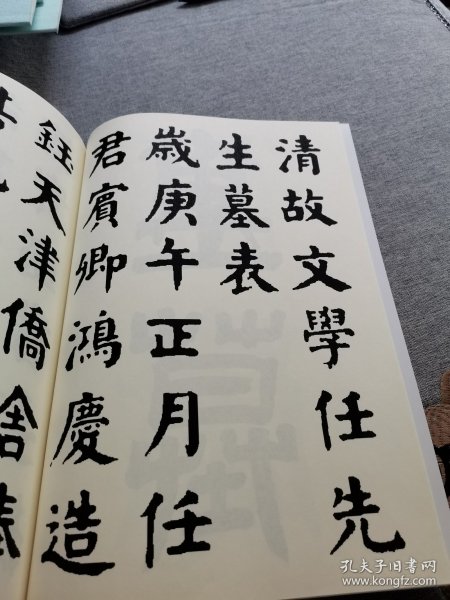 清故文學任先
生墓表
歲庚午正月任
君賓卿鴻慶造
鈺天津僑舍
孔夫子旧书网
www.kongfz.com